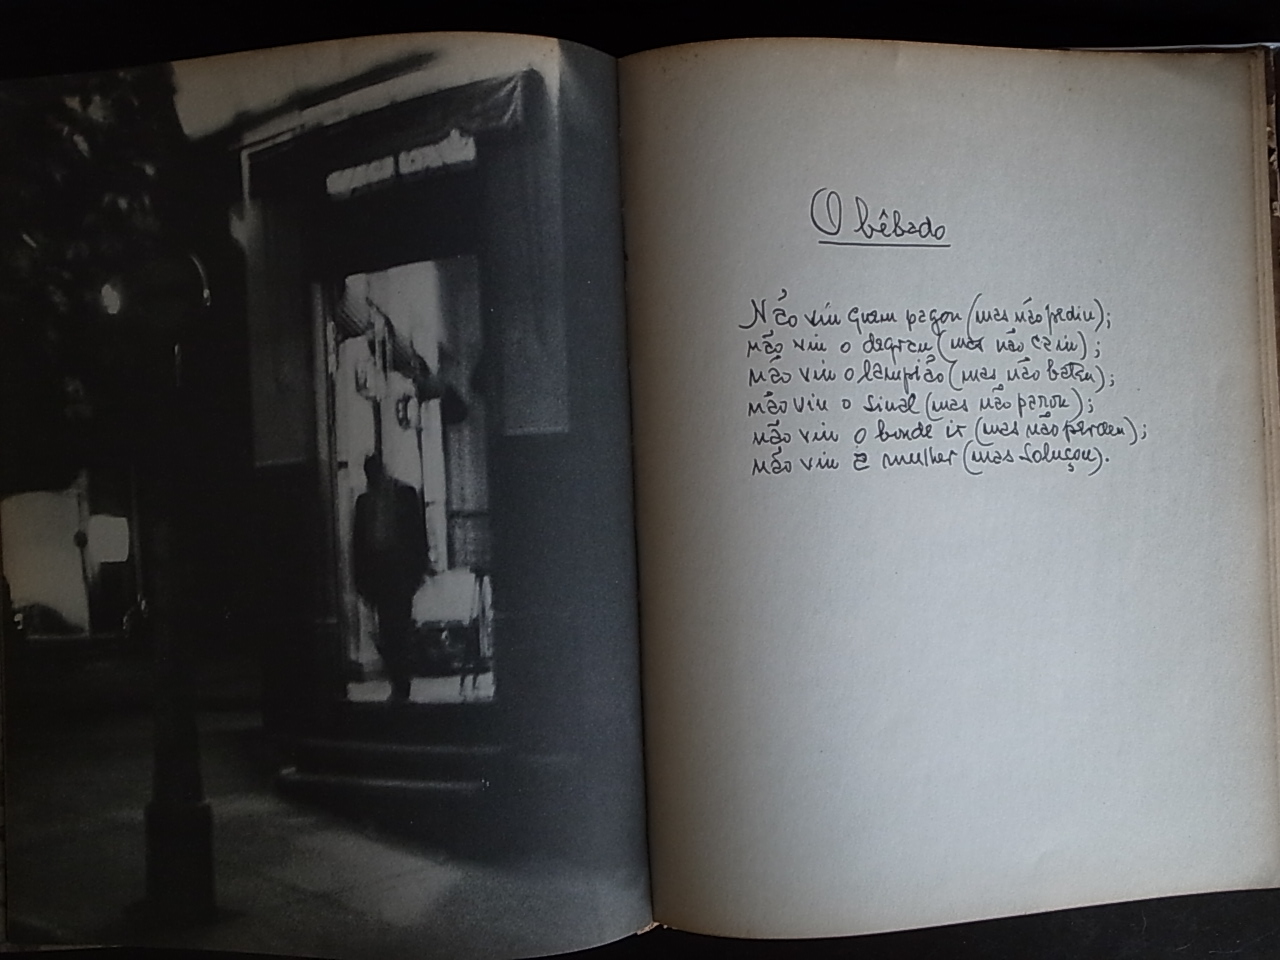 O bêbado
Não viu quem pagou (mas não pediu);
não viu o degrau (mas não caiu);
não viu o lampião (mas não bateu);
não viu o sinal (mas não parou);
não viu o bonde ir (mas não perdeu);
não viu a mulher (mas soluçou).